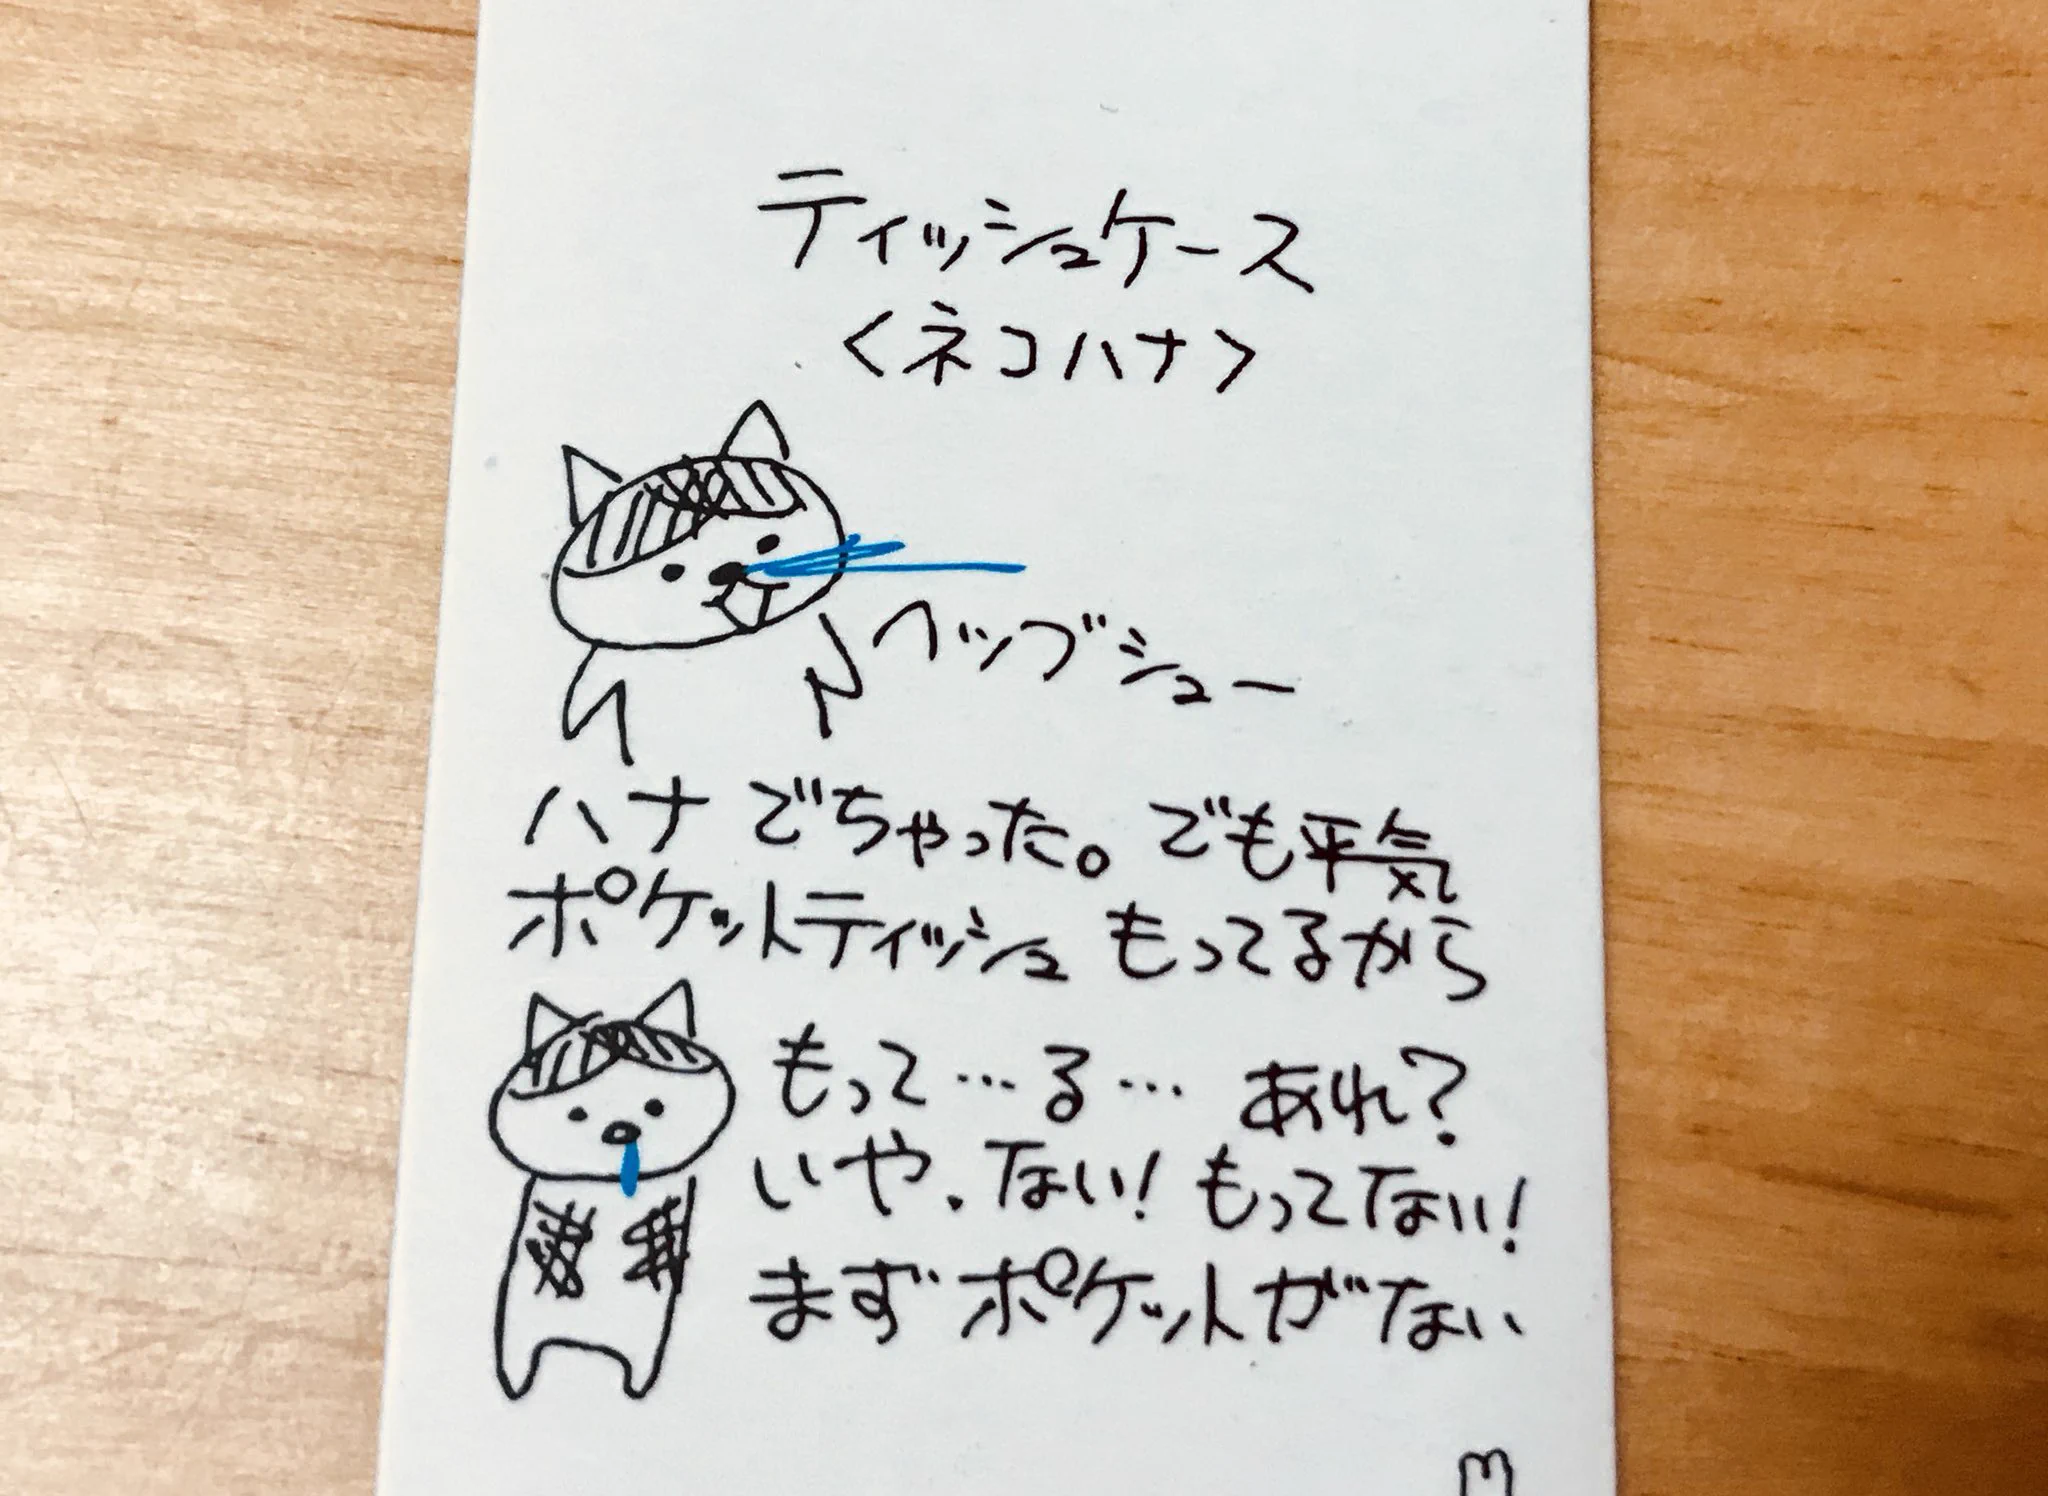 ティッシュケース
<ネコハナ>
ヘッブシュー
ハナ でちゃった。でも平気
ポケットティッシュ もってるから
もって…る… あれ?
いや、ない! もってない!
まずポケットがない
m